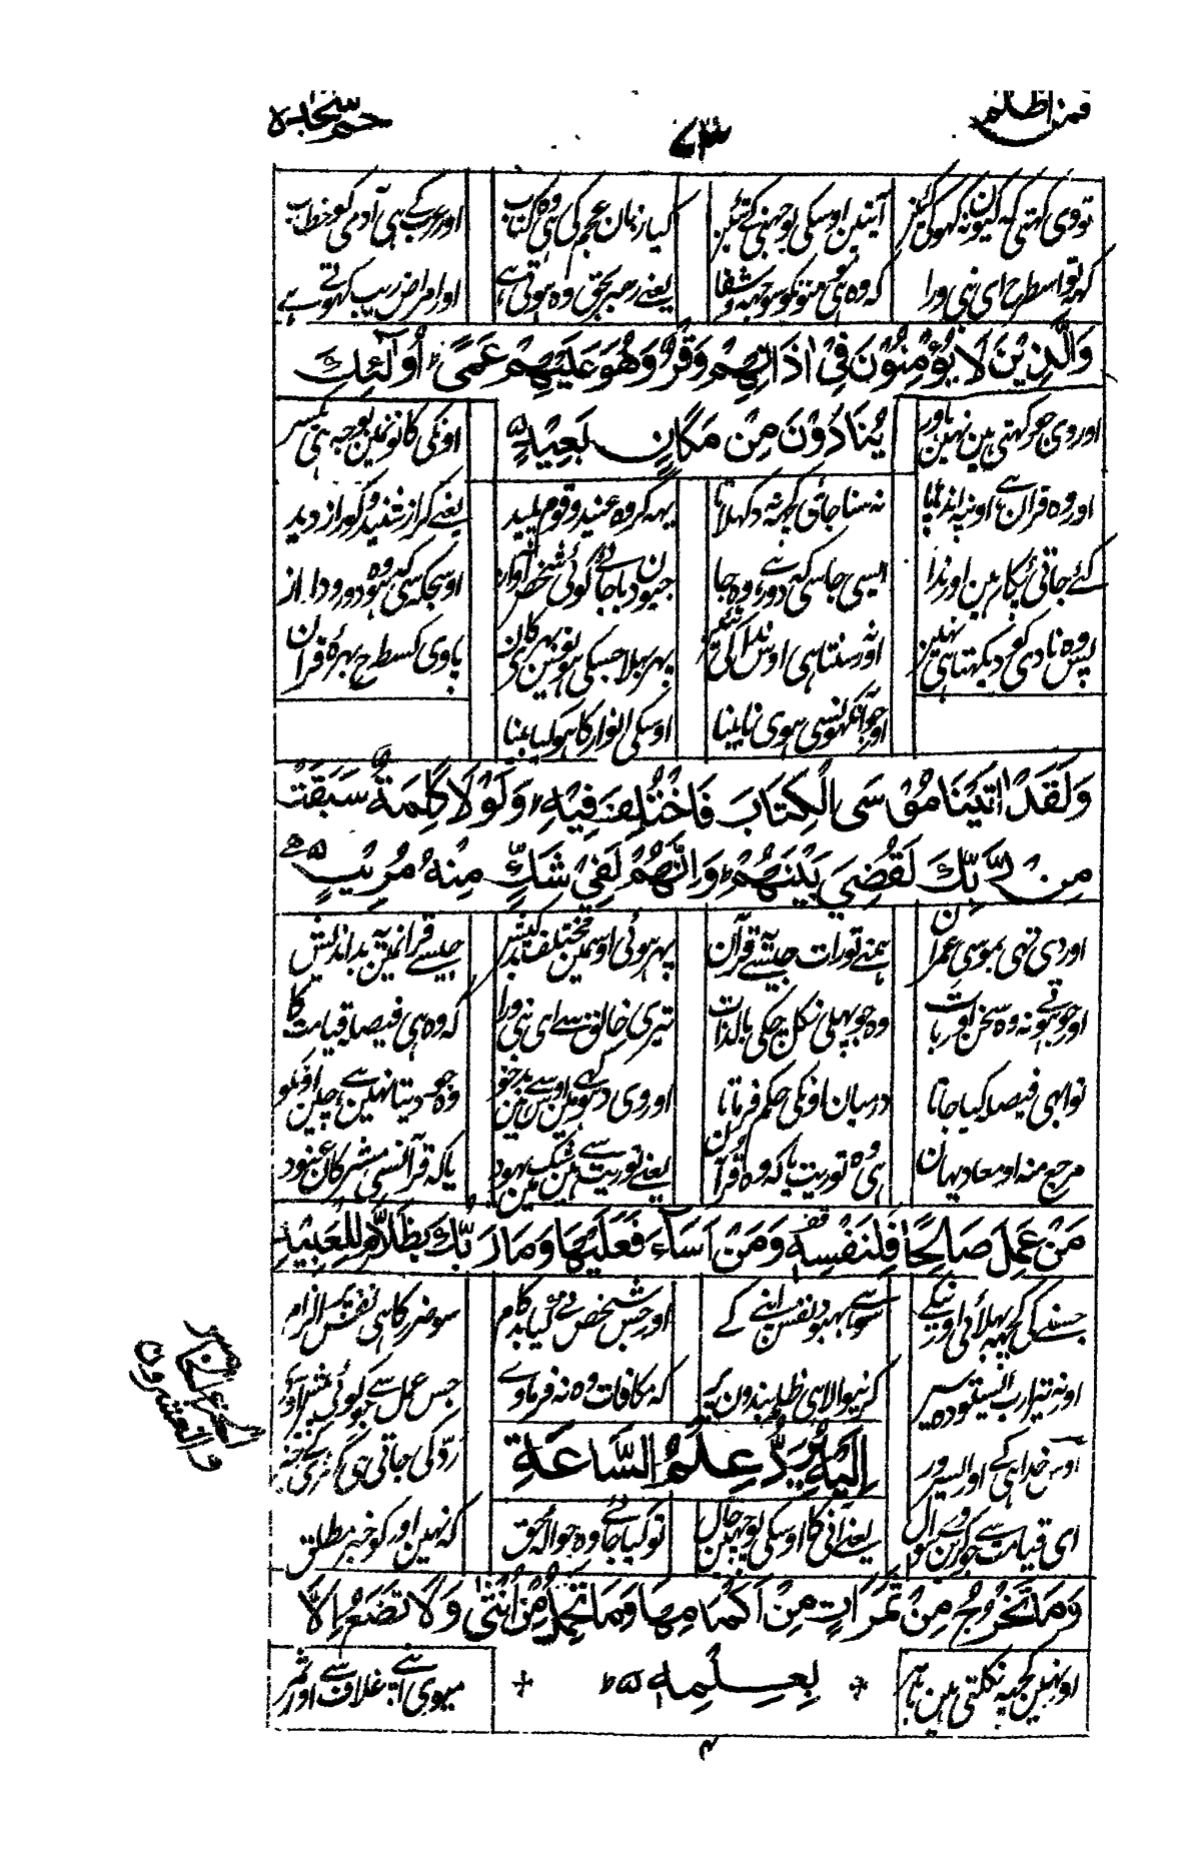 فمن اظلم
۷۳
حم سجدہ
تو وی کہتی کہ کیون نہ کہولی گئین آیتین اوسکی بوجہنی کے تئین کیا زبان عجم کی ہی وہ کتاب اور عرب کے ہی آدمی کو خطاب
کہہ تو اسطرح ای نبی ورا کہ وہ ہی مومنونکو موجبہ و شفا یعنے رہبر بحق وہ ہوتی ہے اور امراض ریب کہوتے ہے
وَالَّذِیْنَ لَا یُؤْمِنُوْنَ فِیْ اٰذَانِهِمْ وَقْرٌ وَّهُوَ عَلَیْهِمْ عَمًی ؕ اُولٰٓئِكَ
یُنَادَوْنَ مِنْ مَّكَانٍ بَعِیْدٍ
اور وی جو کہتی ہین نہین باور اونکی کانونمین بوجہ ہی یکسر
اور وہ قرآن ہے اونپہ اندہاپا نہ سنا جاتی کچہہ نہ دکہلاتا یہہ گروہ عنید و قوم پلید یعنے کر از شنید و کور از دید
کئے جاتی پکار ہین اور ندا ایسی جا سی کہ دور ہے وہ جا جیون ندا جائے کوئی شخص آواز اوسجگہ سی کہ ہو وہ دور و دراز
پس وہ نادی کو دیکہتا ہی نہین اور نہ سنتا ہی اوس ندا کی تئین پہر بہلا جسکی ہووین بہر کان پاوی کسطرح بہرۂ قرآن
اور جو آنکہونسی ہوی نابینا اوسکی انوار کا ہو کیا بینا
وَلَقَدْ اٰتَیْنَا مُوْسَی الْكِتَابَ فَاخْتُلِفَ فِیْهِ ؕ وَلَوْلَا كَلِمَةٌ سَبَقَتْ
مِنْ رَّبِّكَ لَقُضِیَ بَیْنَهُمْ ؕ وَاِنَّهُمْ لَفِیْ شَكٍّ مِّنْهُ مُرِیْبٍ
اور دی تہی بموسی عمران ہمنے تورات جیسے قرآن پہر ہوئی اوسمین مختلف جیسے قرآنمین یہ بد اندیش
اور جو ہوتے نہ وہ سخن اور بات وہ جو پہلی نکل چکی بالذات تیری خالق سے ای نبی ورا کہ وہ ہی فیصلہ قیامت کا
تو ابہی فیصلہ کیا جاتا درمیان اونکی حکم فرماتا اور وی
مرجع منہ او معاد یہان ہی وہ توریت یا کہ وہ قرآن یعنے توریت سے ہین شک مین یہود یا کہ قرآنسی مشرکان عنود
مَنْ عَمِلَ صَالِحًا فَلِنَفْسِهٖ وَمَنْ اَسَآءَ فَعَلَیْهَا وَمَا رَبُّكَ بِظَلَّامٍ لِّلْعَبِیْدِ
جسنے کی کچہہ بہلائی اور نیکے سو ہے بہبود نفس اپنے کے اور جس شخص نے کیا بد کام سو ضرر کا ہی نفس پر الزام
اور نہ تیرا رب ستودہ سیر کرنیوالا ہی ظلم بندون پر کہ مکافات وہ نہ فرماوے جس عمل سے جو کوئی
اِلَیْهِ یُرَدُّ عِلْمُ السَّاعَةِ
رد کی جاتی ہی
ای قیامت سے جو کرین سوال یعنے آنی کا اوسکی پوچہین حال تو کیا جائے وہ حوالۂ حق کہ نہین اور کو خبر مطلق
وَمَا تَخْرُجُ مِنْ ثَمَرَاتٍ مِّنْ اَكْمَامِهَا وَمَا تَحْمِلُ مِنْ اُنْثٰی وَلَا تَضَعُ اِلَّا
بِعِلْمِهٖ
اور نہین کچہہ نکلتی ہین باہر میوی اپنے غلاف سے اور ثمر
الجزء الخامس والعشرون